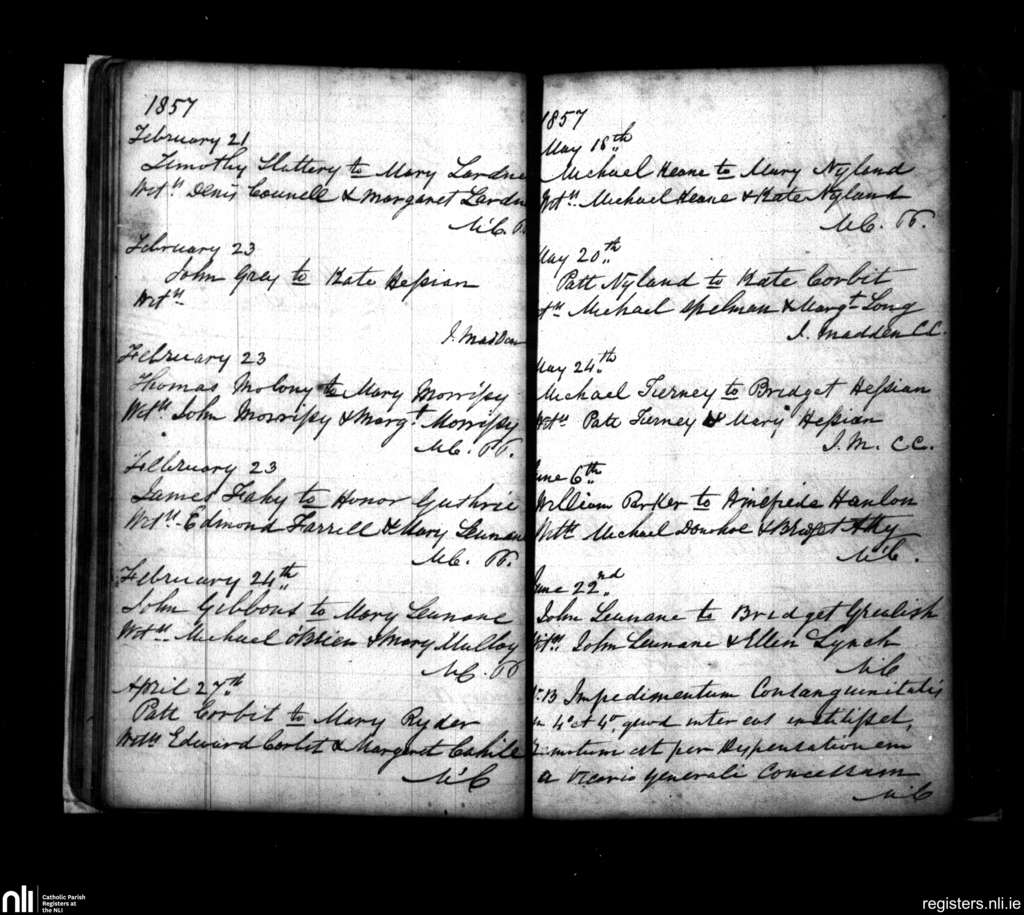 1857
February 21
Timothy Slattery to Mary Lardne
Witss Denis Counell & Margaret Lardn
McC. P
February 23
John Grey to Kate Hessian
Witss
J. Madden
February 23
Thomas Molony to Mary Morrissy
Witss John Morrissy & Margt Morrissy
McC. PP.
February 23
James Fahy to Honor Guthrie
Witss Edmond Farrell & Mary Leunan
McC. PP.
February 24th
John Gibbons to Mary Leunane
Witss Michael O'Brien & Mary Mulloy
McC. P
April 27th
Patt Corbit to Mary Ryder
Witss Edward Corbit & Margaret Cahile
McC
1857
May 18th
Michael Keane to Mary Nyland
Witss Michael Keane & Kate Nyland
McC. PP.
May 20th
Patt Nyland to Kate Corbit
tss Michael Spelman & Margt Long
J. Madden CC.
May 24th
Michael Tierney to Bridget Hessian
Witss Patt Tierney & Mary Hessian
J. M. CC.
une 6th
William Parker to Winefieda Hanlon
Witss Michael Donohoe & Bridget Atty
McC.
June 22nd
John Leunane to Bridget Grealish
Witss John Leunane & Ellen Lynch
McC
N.B Impedimentum Consanguinitatis
in 4o et 4o, quod inter eos extitisset,
remotum est per Dispensationem
a Vicario Generali Concessam
McC
nli
Catholic Parish
Registers at
the NLI
registers.nli.ie